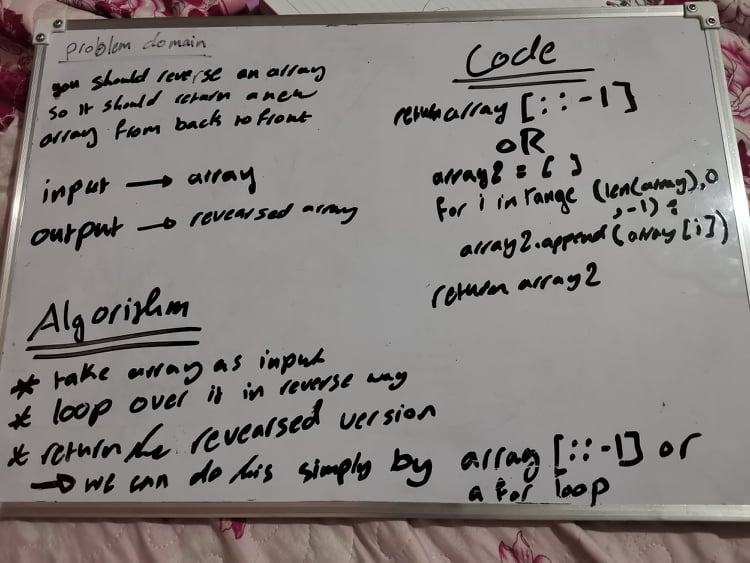 problem domain
you should reverse an array
so it should return a new
array from back to front
input → array
output → revearsed array
Algorithm
* take array as input
* loop over it in reverse way
* return the revearsed version
→ we can do this simply by array [::-1] or
a for loop
Code
return array [::-1]
OR
array2 = [ ]
for i in range (len(array), 0
, -1) :
array2.append (array [i])
return array2